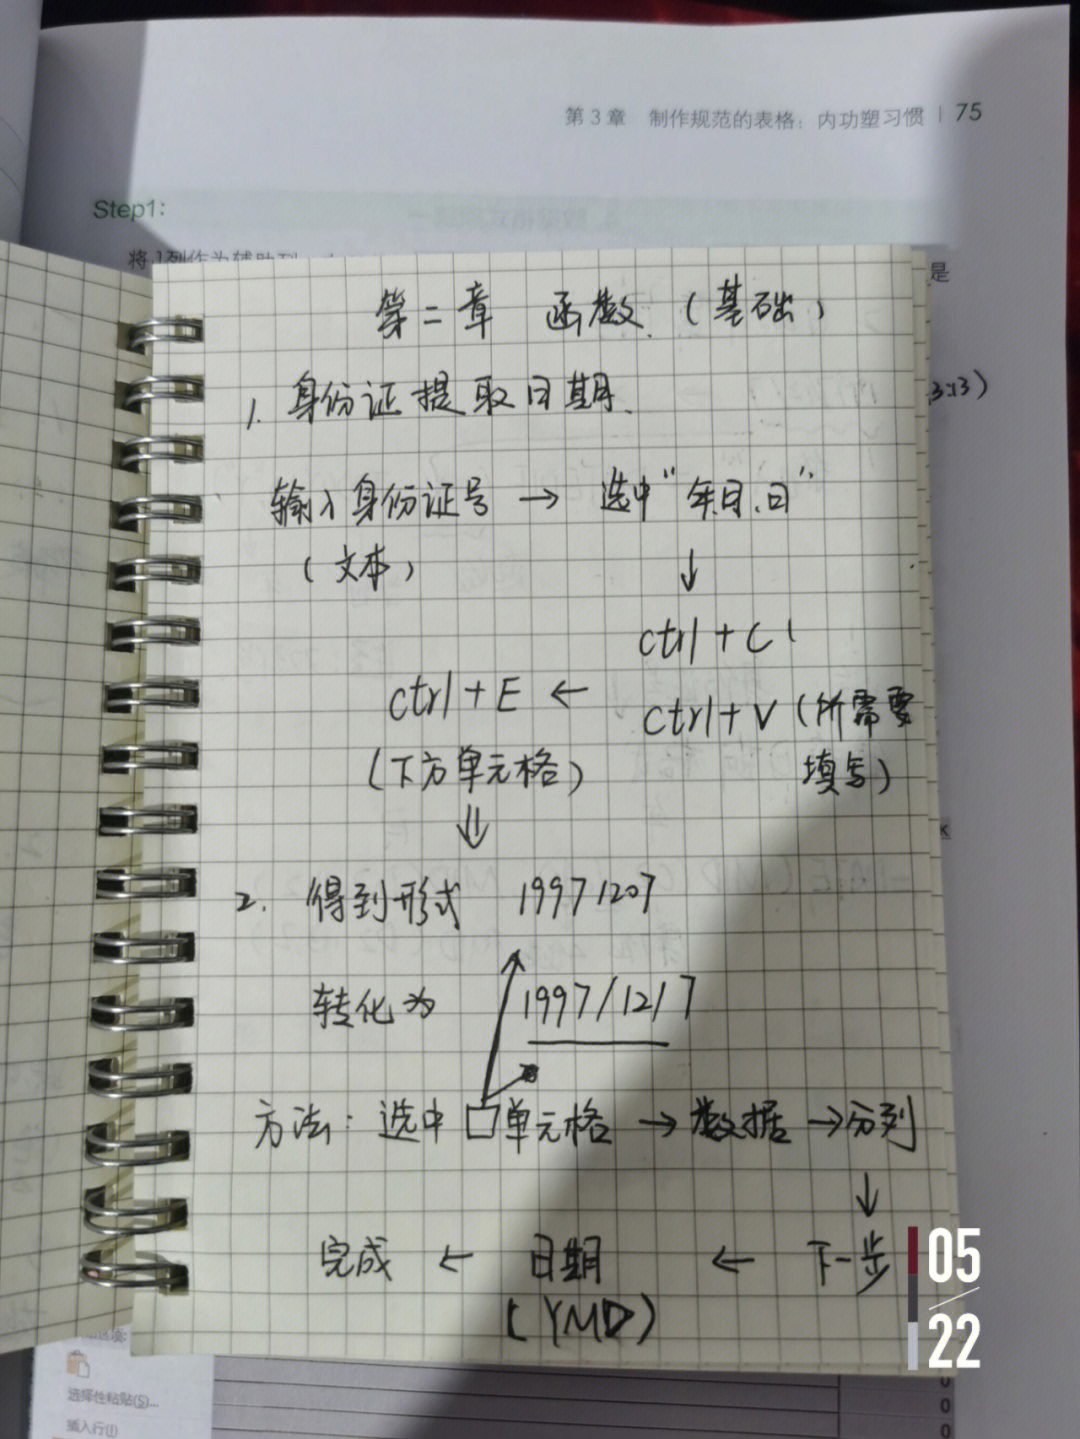 第 3 章 制作规范的表格：内功塑习惯 | 75
Step1:
是
第二章 函数（基础）
3:13)
1. 身份证提取日期.
输入身份证号 → 选中"年.月.日"
（文本）
↓
ctrl + C
ctrl + E ←
ctrl + V（所需要
填写）
（下方单元格）
⇓
2. 得到形式 19971207
转化为 1997/12/7
方法：选中□单元格 → 数据 → 分列
↓
完成 ← 日期 ← 下一步
(YMD)
05
22
选择性粘贴(S)...
插入行(I)
0
0